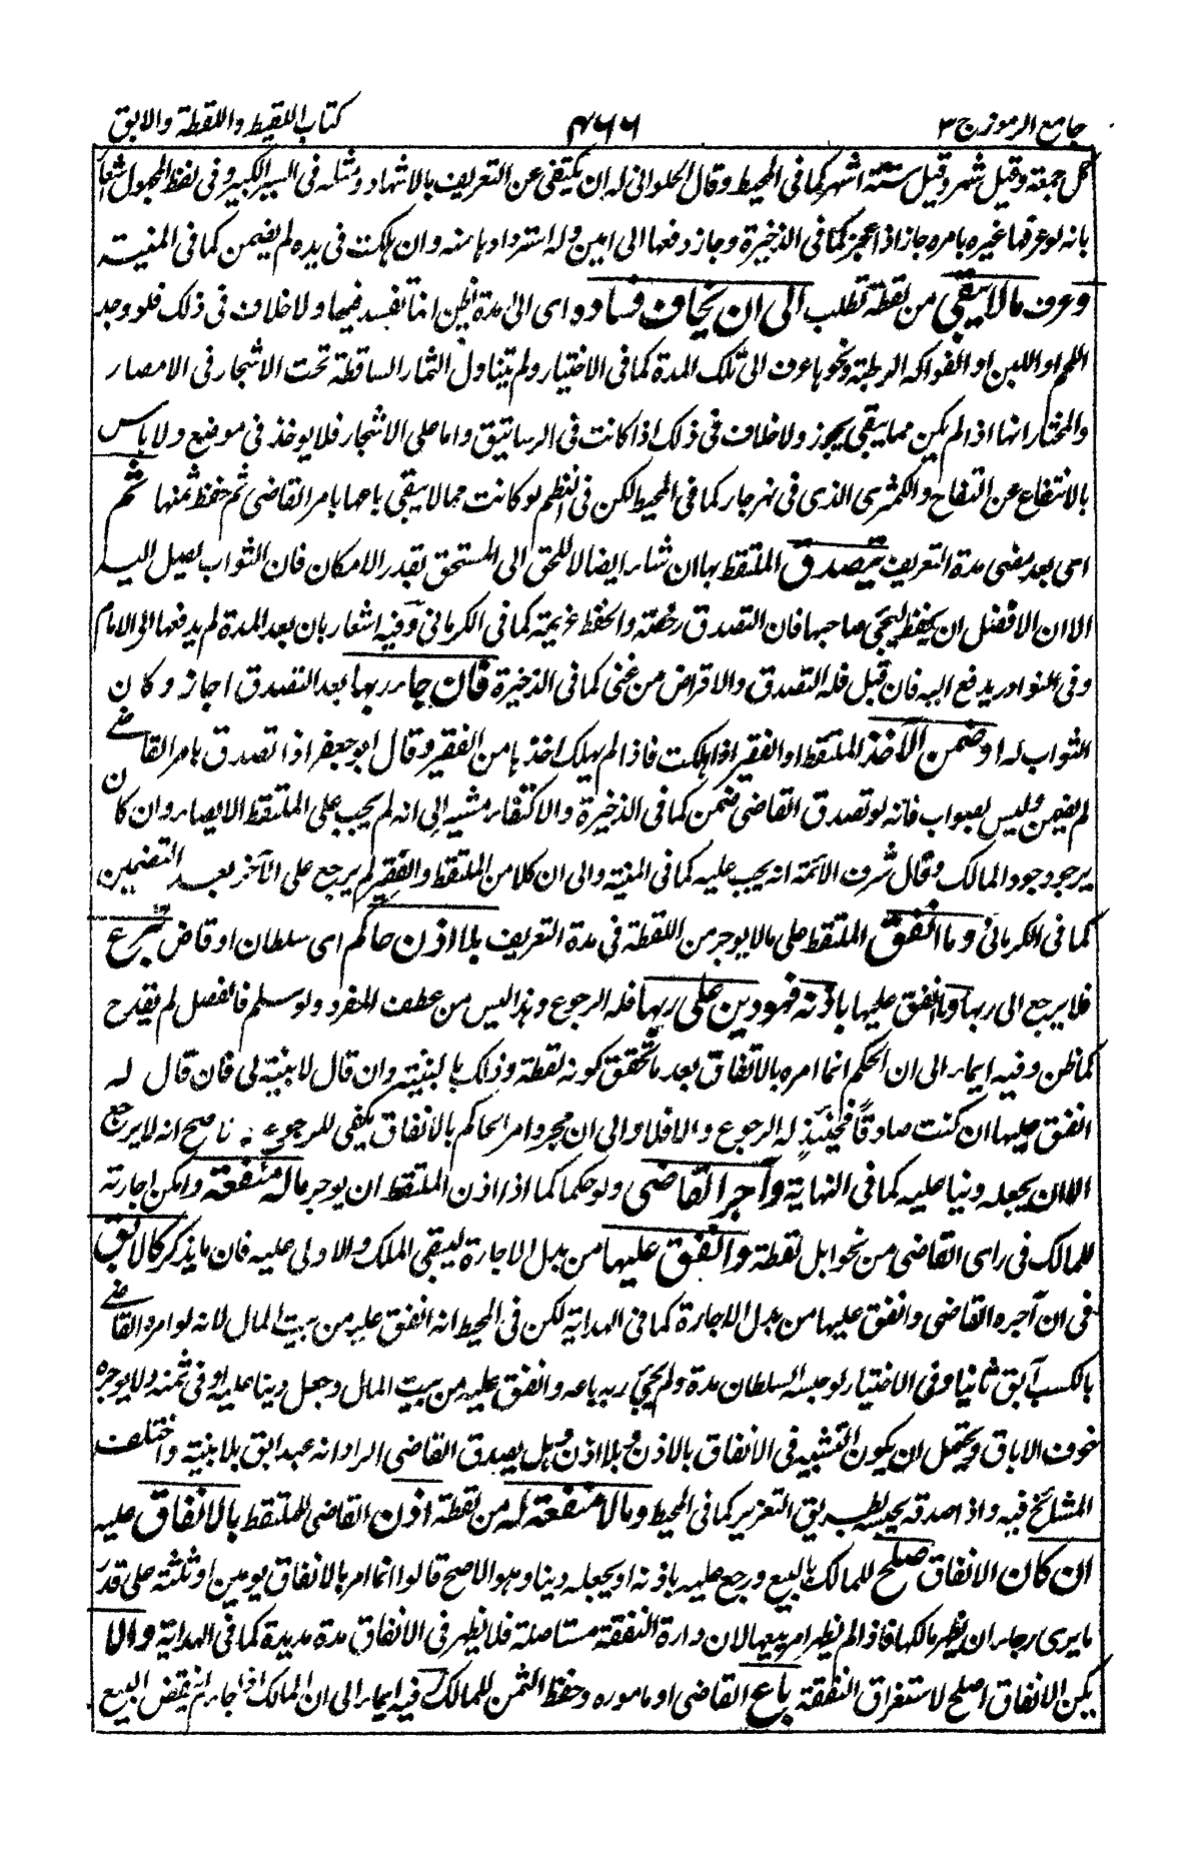 جامع الرموز ج ٣
٤٦٦
كتاب اللقيط واللقطة والابق
كل جمعة وقيل شهر وقيل ستة اشهر كما فى المحيط وقال الحلوانى له ان يكتفى عن التعريف بالاشهاد ومثله فى السير الكبير وفى لفظ المجهول اشعار
بانه لو عرفها غيره بامره جاز اذا عجز كما فى الذخيرة وجاز دفعها الى امين وله استردادها منه وان هلكت فى يده لم يضمن كما فى المنية
وعرف مالا يبقى من لقطة تطلب الى ان يخاف فساده اى الى مدة يظن انها تفسد فيها ولا خلاف فى ذلك فلو وجد
اللحم او اللبن او الفواكه الرطبة ونحوها عرف الى تلك المدة كما فى الاختيار ولم يتناول الثمار الساقطة تحت الاشجار فى الامصار
والمختار انها اذا لم يكن مما يبقى يجوز ولا خلاف فى ذلك اذا كانت فى الرساتيق واما على الاشجار فلا يوخذ فى موضع ولا باس
بالانتفاع عن التفاح والكمثرى الذى فى نهر جار كما فى المحيط لكن فى النظم لو كانت مما لا يبقى باعها بامر القاضى ثم حفظ ثمنها ثم
اى بعد مضى مدة التعريف يتصدق الملتقط بها ان شاء ايضالا للحق الى المستحق بقدر الامكان فان الثواب يصل اليه
الا ان الافضل ان يحفظ ليجئ صاحبها فان التصدق رخصة والحفظ عزيمة كما فى الكرمانى وفيه اشعار بان بعد المدة لم يدفعها الى الامام
وفى النوادر يدفع اليه فان قبل فله التصدق والاقراض من غنى كما فى الذخيرة فان جاء ربها بعد التصدق اجاز وكان
الثواب له او ضمن الآخذ الملتقط او الفقير اذا هلكت فاذا لم يهلك اخذها من الفقير وقال ابو جعفر اذا تصدق بامر القاضى
لم يضمن وليس بصواب فانه لو تصدق القاضى ضمن كما فى الذخيرة والاكتفاء مشير الى انه لم يجب على الملتقط الايصاء وان كان
يرجو وجود المالك وقال شرف الائمة انه يجب عليه كما فى المنية والى ان كلا من الملتقط والفقير لم يرجع على الآخر بعد التضمين
كما فى الكرمانى وما انفق الملتقط على مالا يوجر من اللقطة فى مدة التعريف بلا اذن حاكم اى سلطان او قاض تبرع
فلا يرجع الى ربها وما انفق عليها باذنه فهو دين على ربها فله الرجوع وهذا ليس من عطف المفرد ولو سلم فالفصل لم يقدح
كما ظن وفيه ايماء الى ان الحكم انما امره بالانفاق بعد ما تحقق كونه لقطة وذلك بالبينة وان قال لا بينة لى فان قال له
انفق عليها ان كنت صادقاً فحينئذٍ له الرجوع والا فلا والى ان مجرد امر الحاكم بالانفاق يكفى للرجوع والاصح انه لا يرجع
الا ان يجعله دينا عليه كما فى النهاية وآجر القاضى ولو حكما كما اذا اذن الملتقط ان يوجر ماله منفعة وامكن اجارته
للمالك فى راى القاضى من نحو ابل لقطة وانفق عليها من بدل الاجارة ليبقى الملك والاولى عليه فان ما يذكر كالآبق
فى ان آجره القاضى وانفق عليها من بدل الاجارة كما فى الهداية لكن فى المحيط انه انفق عليه من بيت المال لانه لو امره القاضى
بالكسب آبق ثانيا وفى الاختيار لو حبسه السلطان مدة ولم يجئ ربه باعه وانفق عليه من بيت المال وجعل دينا عليه او فى ثمنه ولا يوجره
خوف الاباق ويحتمل ان يكون التشبيه فى الانفاق بالاذن وبلا اذن وهل يصدق القاضى الراد انه عبد ابق بلا بينة واختلف
المشائخ فيه واذا صدقه يحبسه بطريق التعزير كما فى المحيط ومالا منفعة له من لقطة اذن القاضى للملتقط بالانفاق عليه
ان كان الانفاق صلح للمالك بالبيع ورجع عليه باذنه او يجعله دينا وهو الاصح قالوا انما امر بالانفاق يومين او ثلثة على قدر
ما يرى رجاء ان يظهر مالكها فاذا لم يظهر امر ببيعها لان دارة النفقة مستاصلة فلا نظر فى الانفاق مدة مديدة كما فى الهداية والا
يكن الانفاق اصلح لاستغراق النفقة باع القاضى او ماموره وحفظ الثمن للمالك وفيه ايماء الى ان المالك اذا جاء لم ينقض البيع